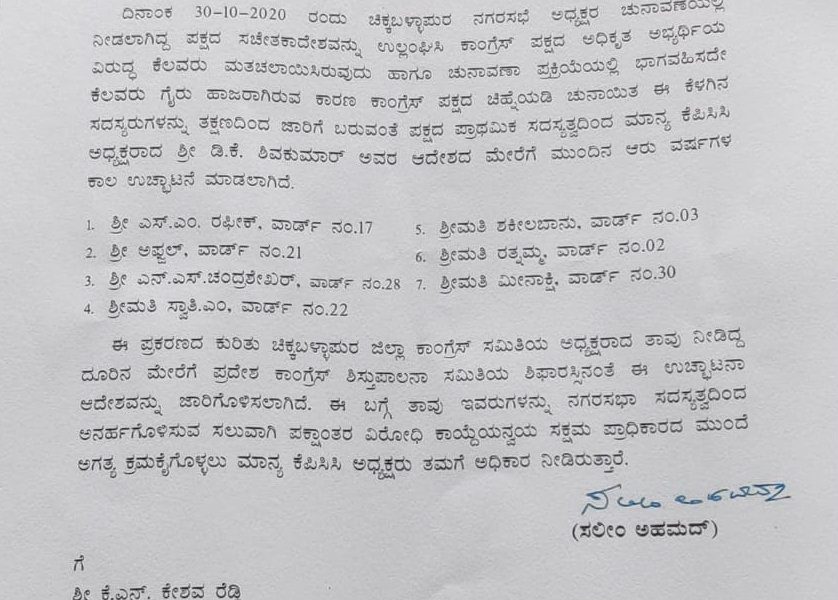 ದಿನಾಂಕ 30-10-2020 ರಂದು ಚಿಕ್ಕಬಳ್ಳಾಪುರ ನಗರಸಭೆ ಅಧ್ಯಕ್ಷರ ಚುನಾವಣೆಯಲ್ಲಿ
ನೀಡಲಾಗಿದ್ದ ಪಕ್ಷದ ಸಚೇತಕಾದೇಶವನ್ನು ಉಲ್ಲಂಘಿಸಿ ಕಾಂಗ್ರೆಸ್ ಪಕ್ಷದ ಅಧಿಕೃತ ಅಭ್ಯರ್ಥಿಯ
ವಿರುದ್ಧ ಕೆಲವರು ಮತಚಲಾಯಿಸಿರುವುದು ಹಾಗೂ ಚುನಾವಣಾ ಪ್ರಕ್ರಿಯೆಯಲ್ಲಿ ಭಾಗವಹಿಸದೇ
ಕೆಲವರು ಗೈರು ಹಾಜರಾಗಿರುವ ಕಾರಣ ಕಾಂಗ್ರೆಸ್ ಪಕ್ಷದ ಚಿಹ್ನೆಯಡಿ ಚುನಾಯಿತ ಈ ಕೆಳಗಿನ
ಸದಸ್ಯರುಗಳನ್ನು ತಕ್ಷಣದಿಂದ ಜಾರಿಗೆ ಬರುವಂತೆ ಪಕ್ಷದ ಪ್ರಾಥಮಿಕ ಸದಸ್ಯತ್ವದಿಂದ ಮಾನ್ಯ ಕೆಪಿಸಿಸಿ
ಅಧ್ಯಕ್ಷರಾದ ಶ್ರೀ ಡಿ.ಕೆ. ಶಿವಕುಮಾರ್ ಅವರ ಆದೇಶದ ಮೇರೆಗೆ ಮುಂದಿನ ಆರು ವರ್ಷಗಳ
ಕಾಲ ಉಚ್ಛಾಟನೆ ಮಾಡಲಾಗಿದೆ.
1. ಶ್ರೀ ಎಸ್.ಎಂ. ರಫೀಕ್, ವಾರ್ಡ್ ನಂ.17
2. ಶ್ರೀ ಅಫ್ಜಲ್, ವಾರ್ಡ್ ನಂ.21
3. ಶ್ರೀ ಎನ್.ಎಸ್.ಚಂದ್ರಶೇಖರ್, ವಾರ್ಡ್ ನಂ.28
4. ಶ್ರೀಮತಿ ಸ್ವಾತಿ.ಎಂ, ವಾರ್ಡ್ ನಂ.22
5. ಶ್ರೀಮತಿ ಶಕೀಲಬಾನು, ವಾರ್ಡ್ ನಂ.03
6. ಶ್ರೀಮತಿ ರತ್ನಮ್ಮ, ವಾರ್ಡ್ ನಂ.02
7. ಶ್ರೀಮತಿ ಮೀನಾಕ್ಷಿ, ವಾರ್ಡ್ ನಂ.30
ಈ ಪ್ರಕರಣದ ಕುರಿತು ಚಿಕ್ಕಬಳ್ಳಾಪುರ ಜಿಲ್ಲಾ ಕಾಂಗ್ರೆಸ್ ಸಮಿತಿಯ ಅಧ್ಯಕ್ಷರಾದ ತಾವು ನೀಡಿದ್ದ
ದೂರಿನ ಮೇರೆಗೆ ಪ್ರದೇಶ ಕಾಂಗ್ರೆಸ್ ಶಿಸ್ತುಪಾಲನಾ ಸಮಿತಿಯ ಶಿಫಾರಸ್ಸಿನಂತೆ ಈ ಉಚ್ಛಾಟನಾ
ಆದೇಶವನ್ನು ಜಾರಿಗೊಳಿಸಲಾಗಿದೆ. ಈ ಬಗ್ಗೆ ತಾವು ಇವರುಗಳನ್ನು ನಗರಸಭಾ ಸದಸ್ಯತ್ವದಿಂದ
ಅನರ್ಹಗೊಳಿಸುವ ಸಲುವಾಗಿ ಪಕ್ಷಾಂತರ ವಿರೋಧಿ ಕಾಯ್ದೆಯನ್ವಯ ಸಕ್ಷಮ ಪ್ರಾಧಿಕಾರದ ಮುಂದೆ
ಅಗತ್ಯ ಕ್ರಮಕೈಗೊಳ್ಳಲು ಮಾನ್ಯ ಕೆಪಿಸಿಸಿ ಅಧ್ಯಕ್ಷರು ತಮಗೆ ಅಧಿಕಾರ ನೀಡಿರುತ್ತಾರೆ.
(ಸಲೀಂ ಅಹಮದ್)
ಗೆ
ಶ್ರೀ ಕೆ.ಎನ್. ಕೇಶವ ರೆಡ್ಡಿ